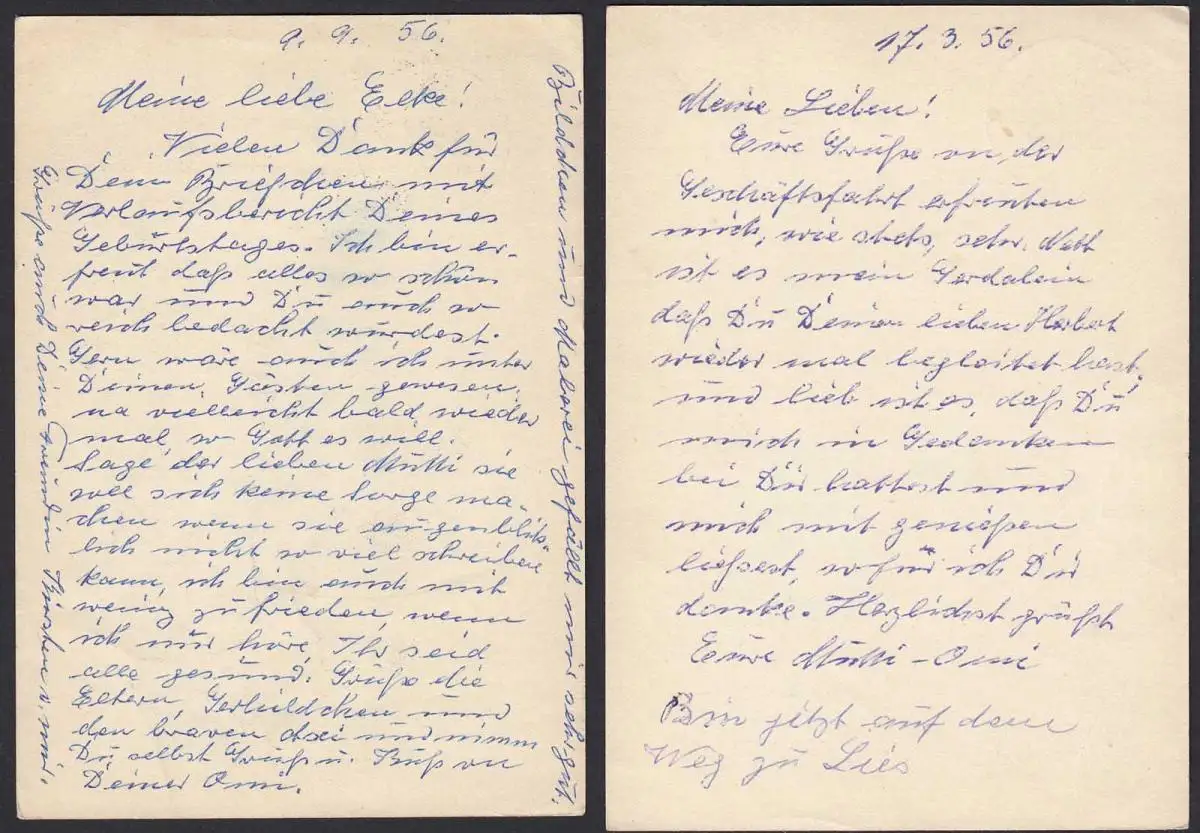 9. 9. 56.
Meine liebe Elke!
Vielen Dank für
Dein Briefchen mit
Verlaufsbericht Deines
Geburtstages. Ich bin er-
freut daß alles so schön
war und Du auch so
reich bedacht wurdest.
Gern wäre auch ich unter
Deinen Gästen gewesen,
na vielleicht bald wieder
mal, so Gott es will.
Sage der lieben Mutti sie
soll sich keine Sorge ma-
chen wenn sie augenblick-
lich nicht so viel schreiben
kann, ich bin auch mit
wenig zufrieden, wenn
ich nur höre, Ihr seid
alle gesund. Grüße die
Eltern, Gerhildchen und
den braven und nimm
Du selbst Gruß u. Kuß von
Deiner Omi.
Grüße auch Deine Freundin Kirsten v. mir.
Bildchen und Malerei gefällt mir sehr gut.
17. 3. 56.
Meine Lieben!
Eure Grüße von der
Geschäftsfahrt erfreuten
mich, wie stets, sehr. Nett
ist es mein Gerdalein
daß Du Deinen lieben Herbert
wieder mal begleitet hast,
und lieb ist es, daß Du
mich in Gedanken
bei Dir hattest und
mich mit genießen
ließest, wofür ich Dir
danke. Herzlichst grüßt
Eure Mutti-Omi
Bin jetzt auf dem
Weg zu Lies